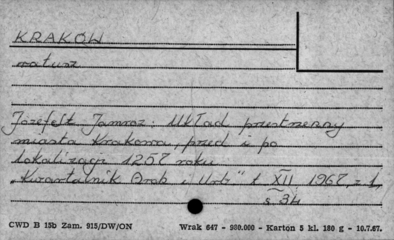 KRAKÓW
ratusz
Józefest Jamroz: Układ przestrzenny
miasta Krakowa, przed i po
lokalizacji 1257 roku
„Kwartalnik Arch i Urb" t XII 1967, z 1,
s 34
CWD B 15b Zam. 915/DW/ON
Wrak 647 - 980.000 - Karton 5 kl. 180 g - 10.7.67.